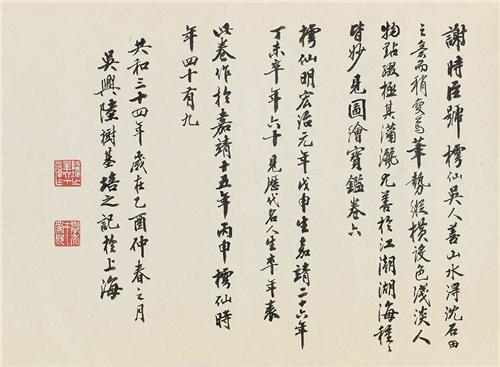 謝時臣號樗仙吳人善山水得沈石田
之意而稍變焉筆勢縱橫設色淺淡人
物點綴極其瀟灑尤善於江潮湖海種〻
皆妙見圖繪寶鑑卷六
樗仙明宏治元年戊申生嘉靖二十六年
丁未卒年六十見歷代名人生卒年表
此卷作於嘉靖十五年丙申樗仙時
年四十有九
共和三十四年歲在乙酉仲春之月
吳興陸樹基培之記於上海